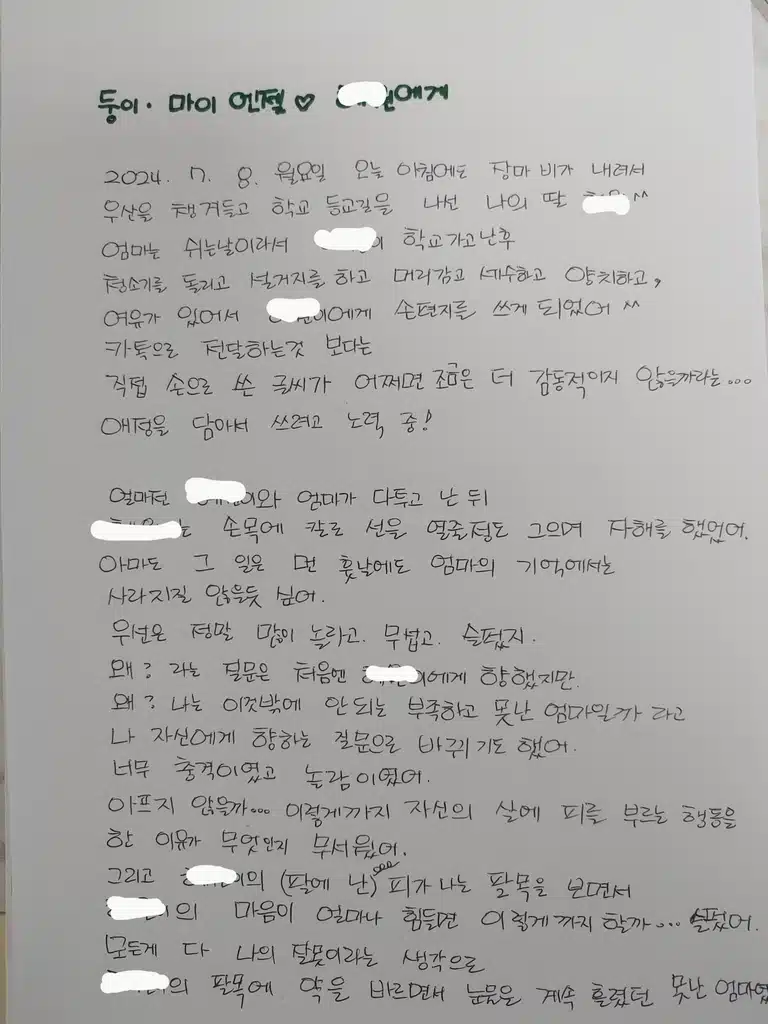 둥이. 마이 엔젤 ♡ 에게
2024. 7. 8. 월요일 오늘 아침에도 장마 비가 내려서
우산을 챙겨들고 학교 등교길을 나선 나의 딸 ^^
엄마는 쉬는날이라서 이 학교가고난후
청소기를 돌리고 설거지를 하고 머리감고 세수하고 양치하고,
여유가 있어서 이에게 손편지를 쓰게 되었어 ^^
카톡으로 전달하는것 보다는
직접 손으로 쓴 글씨가 어쩌면 조금은 더 감동적이지 않을까라는...
애정을 담아서 쓰려고 노력 중!
얼마전 이와 엄마가 다투고 난 뒤
는 손목에 칼로 선을 열줄정도 그으며 자해를 했었어.
아마도 그 일은 먼 훗날에도 엄마의 기억에서는
사라지질 않을듯 싶어.
우선은 정말 많이 놀라고. 무섭고. 슬펐지.
왜? 라는 질문은 처음엔 이에게 향했지만.
왜? 나는 이것밖에 안되는 부족하고 못난 엄마일까 라고
나 자신에게 향하는 질문으로 바뀌기도 했어.
너무 충격이였고 놀람이였어.
아프지 않을까... 이렇게까지 자신의 살에 피를 부르는 행동을
한 이유가 무엇인지 무서웠어.
그리고 이의 (팔에 난) 피가 나는 팔목을 보면서
이의 마음이 얼마나 힘들면 이렇게까지 할까... 슬펐어.
모든게 다 나의 잘못이라는 생각으로
의 팔목에 약을 바르면서 눈물은 계속 흘렸던 못난 엄마였